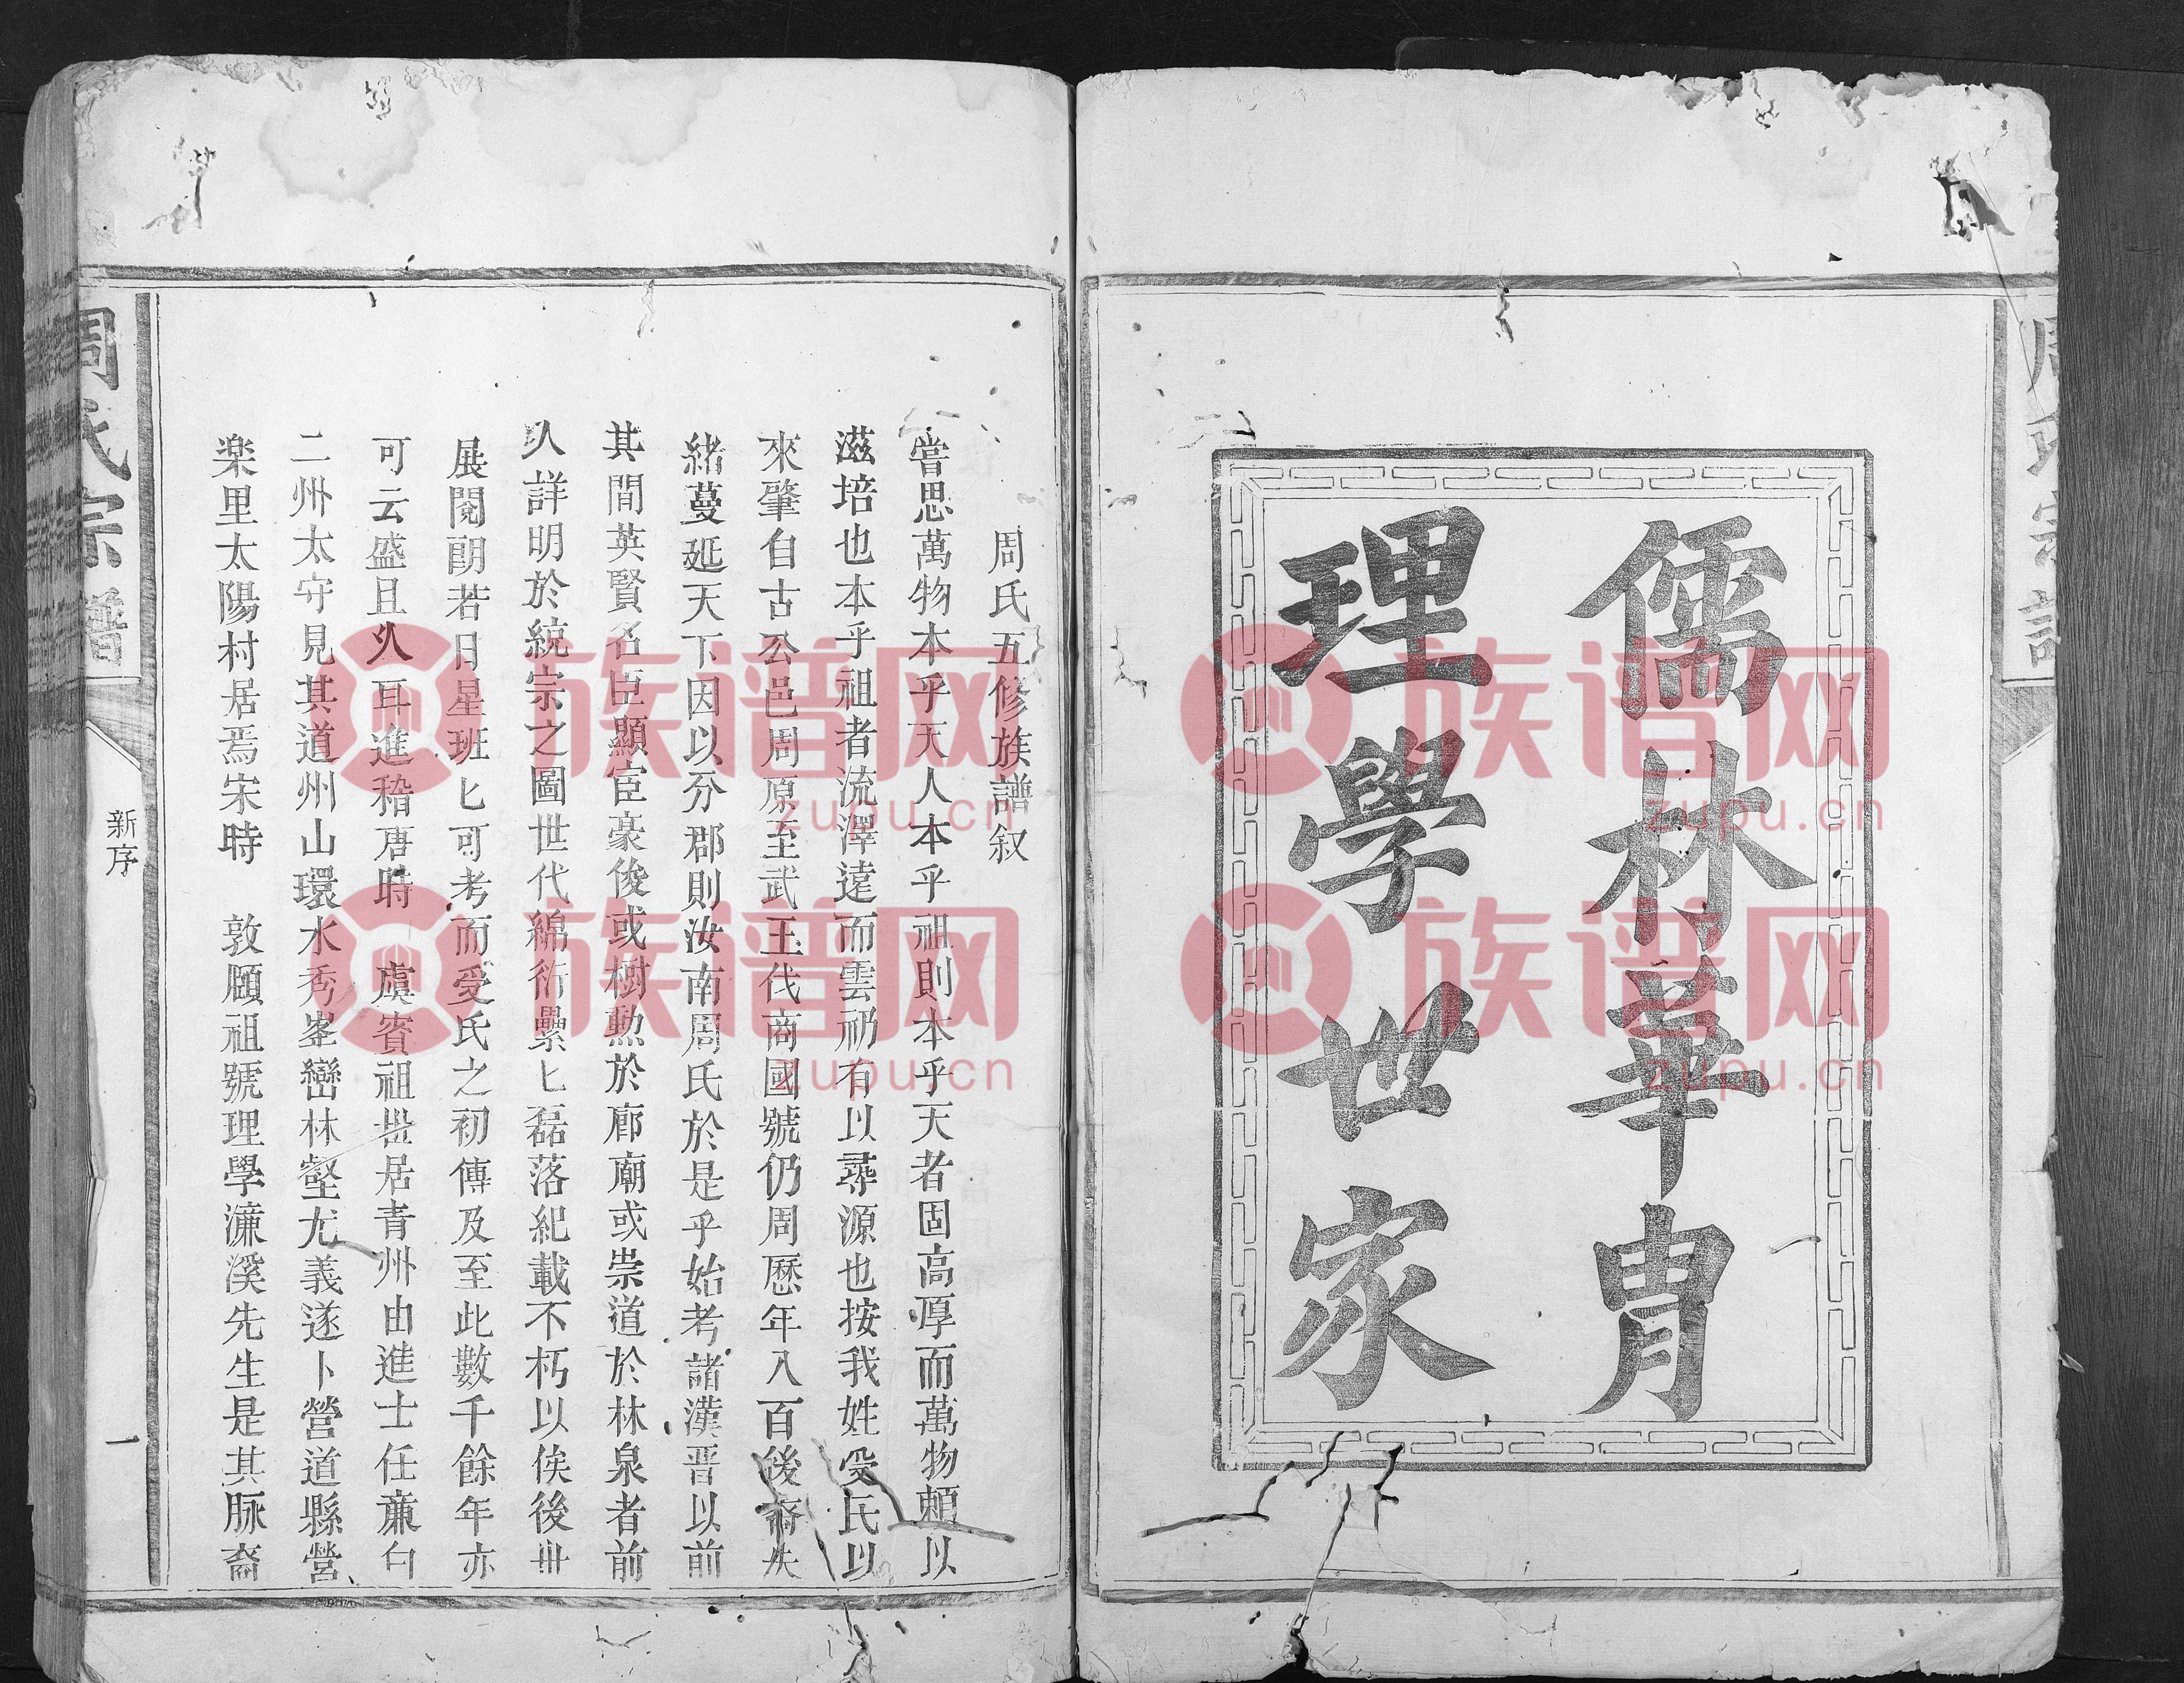 儒林華胄
理學世家
周氏宗譜
周氏五修族譜叙
嘗思萬物本乎天人本乎祖則本乎天者固高厚而萬物頼以
滋培也本乎祖者流澤遠而雲礽有以尋源也按我姓受氏以
來肇自古公邑周原至武王伐商國號仍周歷年八百後裔失
緒蔓延天下因以分郡則汝南周氏於是乎始考諸漢晋以前
其間英賢名臣顯宦豪俊或樹勲於廊廟或崇道於林泉者前
人詳明於統宗之圖世代綿衍纍匕磊落紀載不朽以俟後世
展閱朗若日星班匕可考而受氏之初傳及至此數千餘年亦
可云盛且久耳進稽唐時 虞賓祖世居青州由進士任亷白
二州太守見其道州山環水秀峯巒林壑尤義遂卜營道縣營
楽里太陽村居焉宋時 敦頤祖號理學濂溪先生是其脉裔
周氏宗譜
新序
一
族谱网
zupu.cn
族谱网
zupu.cn
族谱网
zupu.cn
族谱网
zupu.cn